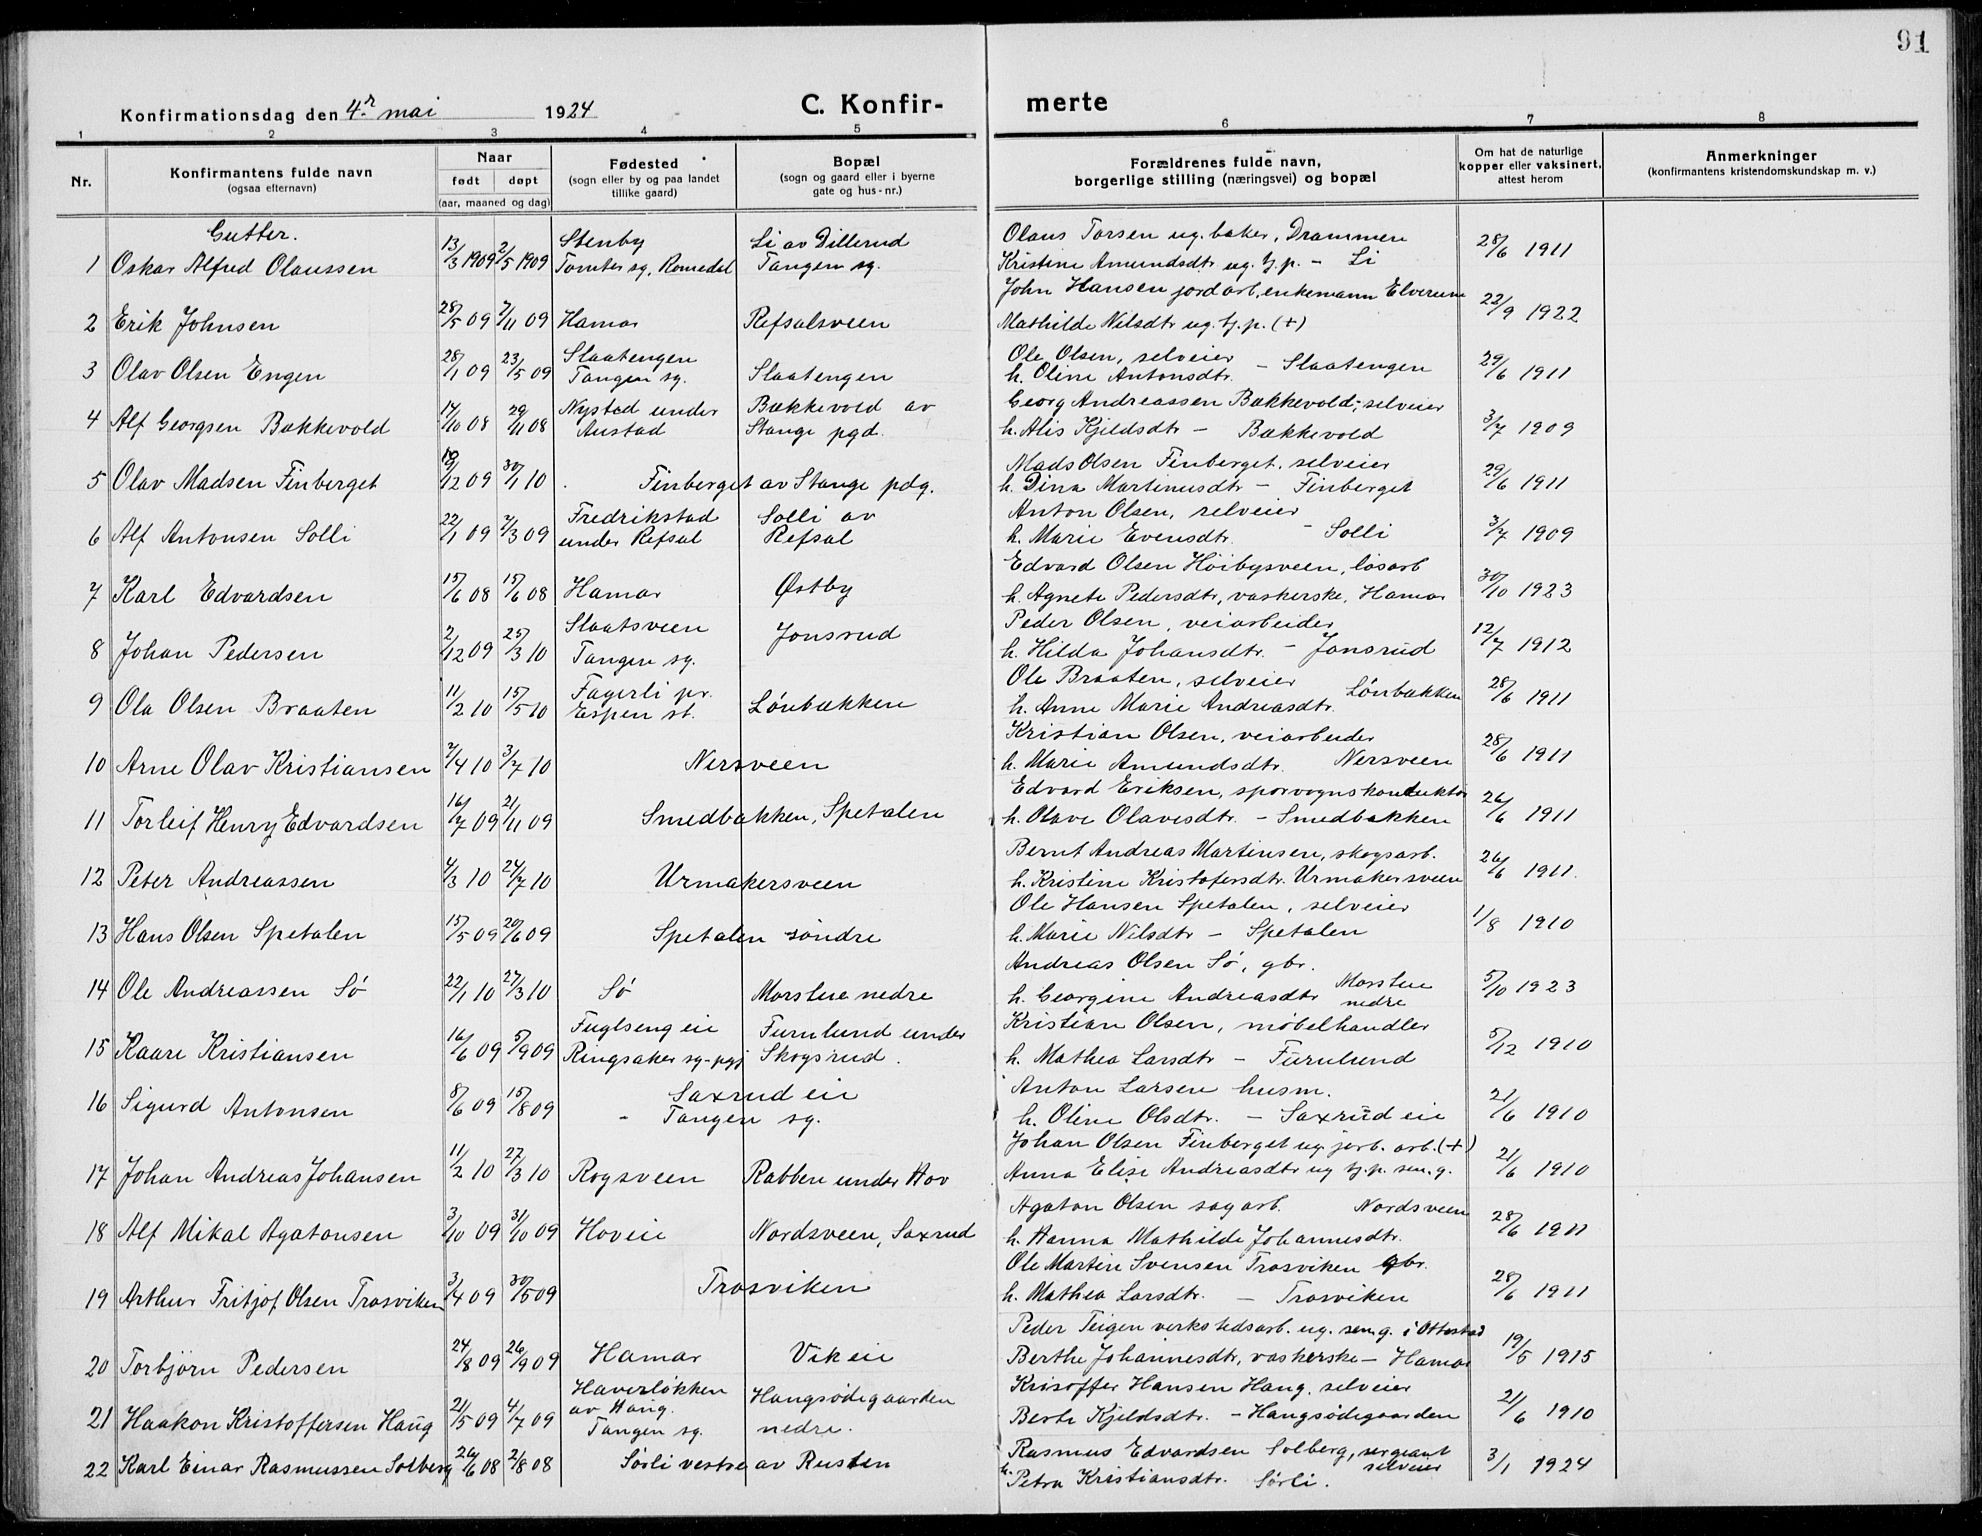 91
Konfirmationsdag den 4de mai 1924 C. Konfir- merte
1 2 3 4 5 6 7 8
Nr. Konfirmantens fulde navn (ogsaa efternavn) Naar født døpt (aar, maaned og dag) Fødested (sogn eller by og paa landet tillike gaard) Bopæl (sogn og gaard eller i byerne gate og hus-nr.) Forældrenes fulde navn, borgerlige stilling (næringsvei) og bopæl Om hat de naturlige kopper eller vaksinert, attest herom Anmerkninger (konfirmantens kristendomskundskap m. v.)
Gutter.
1 Oskar Alfred Olaussen 13/3 1909 2/5 1909 Stenby Tomter sg, Romedal Li av Dillerud Tangen sg. Olaus Torsen ug. baker, Drammen Kristine Amundsdtr ug. tj. p. - Li 28/6 1911
2 Erik Johnsen 28/5 09 7/11 09 Hamar Refsalsveen John Hansen jordarb, enkemann Elverum Mathilde Nilsdtr ug. tj. p. (+) 22/9 1922
3 Olav Olsen Engen 28/1 09 23/5 09 Slaatengen Tangen sg. Slaatengen Ole Olsen, selveier h. Oline Antonsdtr. - Slaatengen 29/6 1911
4 Alf Georgsen Bækkevold 17/10 08 29/11 08 Nystad under Austad Bækkevold av Stange pgd. Georg Andreassen Bækkevold, selveier h. Alis Kjeldsdtr - Bækkevold 3/7 1909
5 Olav Madsen Finberget 19/12 09 30/1 10 Finberget av Stange pdg. Mads Olsen Finberget, selveier h. Dina Martinusdtr - Finberget 29/6 1911
6 Alf Antonsen Solli 22/1 09 7/3 09 Fredrikstad under Refsal Solli av Refsal Anton Olsen, selveier h. Marie Evensdtr. - Solli 3/7 1909
7 Karl Edvardsen 15/6 08 15/6 08 Hamar Østby Edvard Olsen Høibysveen, løsarb h. Agnete Pedersdtr, vaskerske, Hamar 30/10 1923
8 Johan Pedersen 2/12 09 25/3 10 Slaatsveen Tangen sg. Jonsrud Peder Olsen, veiarbeider h. Hilda Johansdtr. - Jonsrud 12/7 1912
9 Ola Olsen Braaten 11/2 10 15/5 10 Fagerli pr. Espen st. Lönbækken Ole Braaten, selveier h. Anne Marie Andreasdtr. Lönbækken 28/6 1911
10 Arne Olav Kristiansen 7/4 10 3/7 10 Nersveen Kristian Olsen, veiarbeider h. Marie Amundsdtr. Nersveen 28/6 1911
11 Torleif Henry Edvardsen 16/7 09 21/11 09 Smedbakken, Spetalen Edvard Eriksen, sporvognskonduktør h. Olave Olavesdtr. - Smedbakken 26/6 1911
12 Peter Andreassen 4/3 10 24/7 10 Urmakersveen Bernt Andreas Martinsen, skogsarb. h. Kristine Kristofersdtr. Urmakersveen 26/6 1911.
13 Hans Olsen Spetalen 15/5 09 20/6 09 Spetalen söndre Ole Hansen Spetalen, selveier h. Marie Nilsdtr - Spetalen 1/8 1910
14 Ole Andreassen Sö 22/1 10 27/3 10 Sö Morstue nedre Andreas Olsen Sö, gbr. h. Georgine Andreasdtr Morstue nedre 5/10 1923
15 Kaare Kristiansen 16/6 09 5/9 09 Fuglseng eie Ringsaker sg-pgj Furulund under Skogsrud. Kristian Olsen, møbelhandler h. Mathea Larsdtr - Furulund 5/12 1910
16 Sigurd Antonsen 8/6 09 15/8 09 Saxrud eie - Tangen sg. Anton Larsen husm. h. Oline Olsdtr. - Saxrud eie 21/6 1910
17 Johan Andreas Johansen 11/2 10 27/3 10 Rogsveen Rabben under Hov Johan Olsen Finberget ug. jorb. arb. (+) Anna Elise Andreasdtr ug tj. p. sm. g. 21/6 1910
18 Alf Mikal Agatonsen 3/10 09 31/10 09 Hoveie Nordsveen, Saxrud Agaton Olsen sagarb. Nordsveen h. Hanna Mathilde Johannesdtr. 28/6 1911
19 Arthur Fritjof Olsen Trosviken 3/4 09 30/5 09 Trosviken Ole Martin Svensen Trosviken gbr. h. Mathea Larsdtr. - Trosviken 28/6 1911
20 Torbjörn Pedersen 24/8 09 26/9 09 Hamar Vikeie Peder Teigen verkstedsarb. ug. sm. g. i Ottestad Berthe Johannesdtr, vaskerske - Hamar 19/5 1915
21 Haakon Kristoffersen Haug 21/5 09 4/7 09 Haverløkken av Haug. Tangen sg. Haugsödegaarden nedre. Krisoffer Hansen Haug, selveier Berte Kjeldsdtr. - Haugsödegaarden 21/6 1910
22 Karl Einar Rasmussen Solberg 26/6 08 2/8 08 Sörli vestre av Rusten Rasmus Edvardsen Solberg, sergeant selveier h. Petra Kristiansdtr. Sörli. 3/1 1924